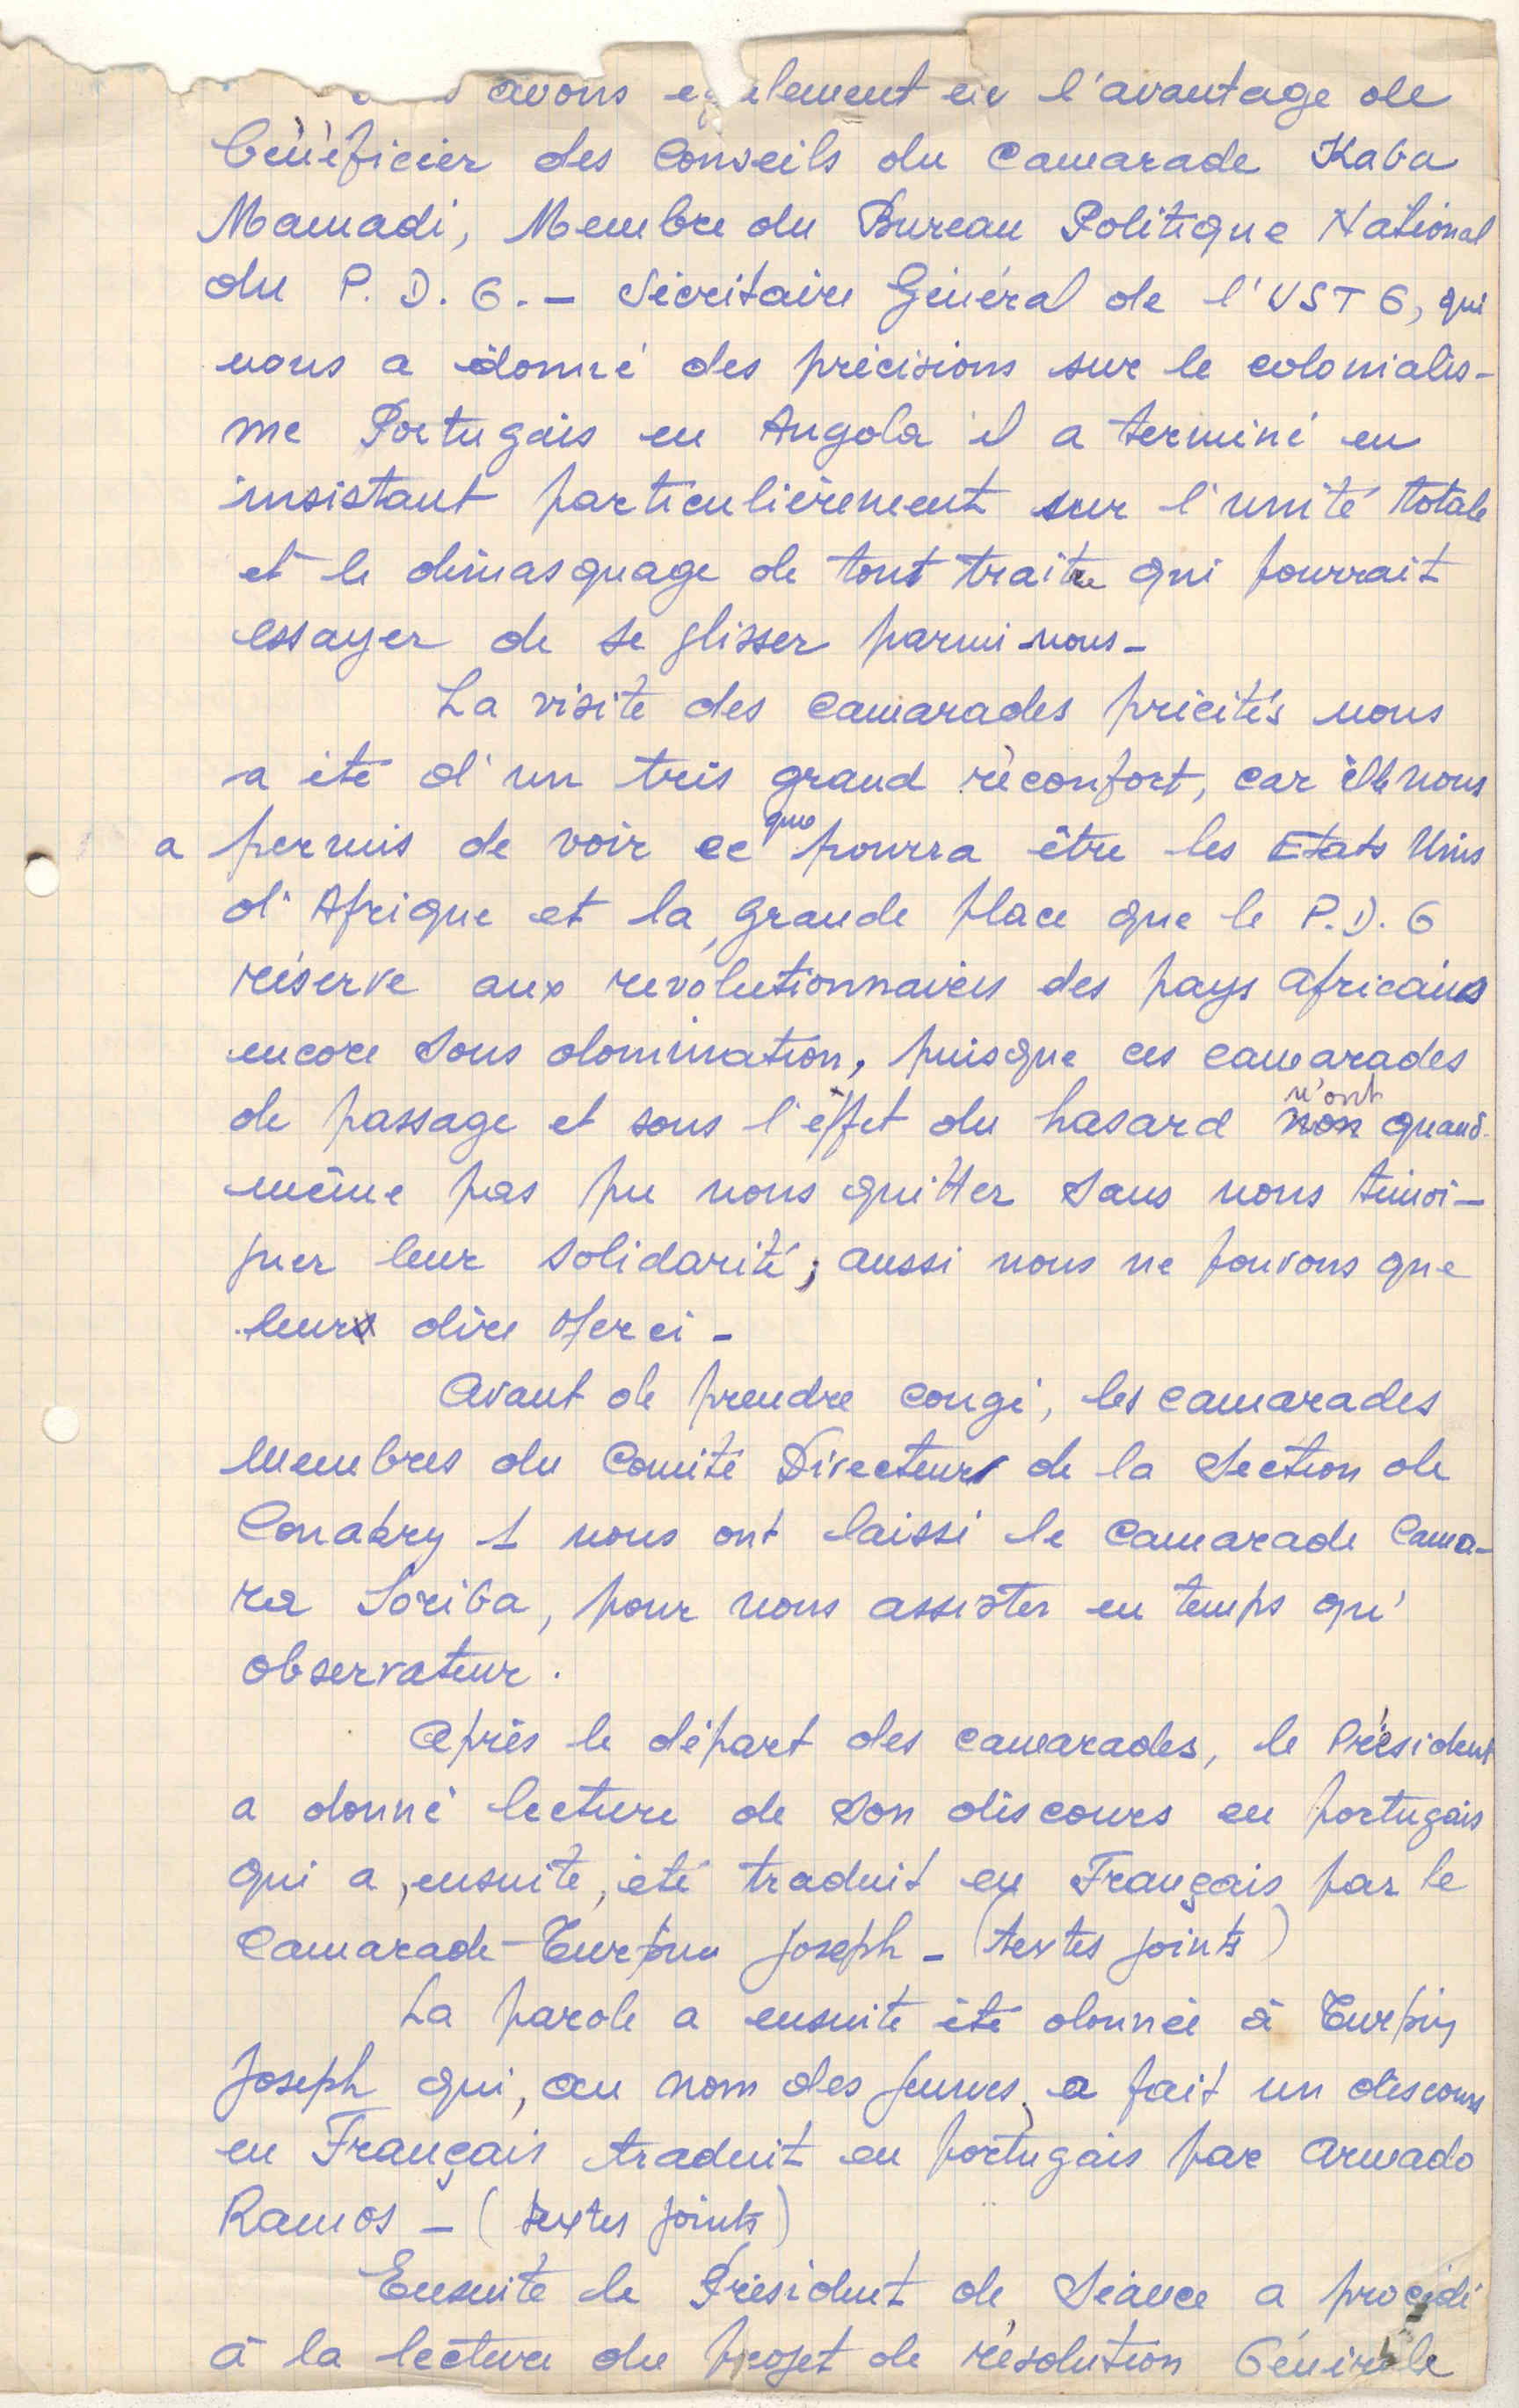 avons également eu l'avantage de
bénéficier des Conseils du Camarade Kaba
Mamadi, Membre du Bureau Politique National
du P. D. G. - Sécrétaire Général de l'USTG, qui
nous a donné des précisions sur le colonialis-
me Portugais en Angola il a terminé en
insistant particulièrement sur l'unité totale
et le démasquage de tout traitre qui pourrait
essayer de se glisser parmi nous -
La visite des camarades précités nous
a été d'un très grand réconfort, car elle nous
a permis de voir ce que pourra être les Etats Unis
d'Afrique et la grande place que le P.D.G
réserve aux revolutionnaires des pays africains
encore sous domination, puisque ces camarades
de passage et sous l'éffet du hasard n'ont quand-
même pas pu nous quitter sans nous témoi-
gner leur solidarité; aussi nous ne pouvons que
leur dire Merci -
Avant de prendre congé, les camarades
membres du Comité Directeur de la Section de
Conakry 1 nous ont laissé le camarade Cama-
ra Soriba, pour nous assister en temps qu'
observateur.
Après le départ des camarades, le Président
a donné lecture de son discours en portugais
qui a, ensuite, été traduit en Français par le
Camarade Turpin Joseph - (textes joints)
La parole a ensuite été donnée à Turpin
Joseph qui, au nom des jeunes, a fait un discours
en Français traduit en portugais par Armado
Ramos - (textes joints)
Ensuite le Président de Séance a procédé
à la lecture du projet de résolution Générale